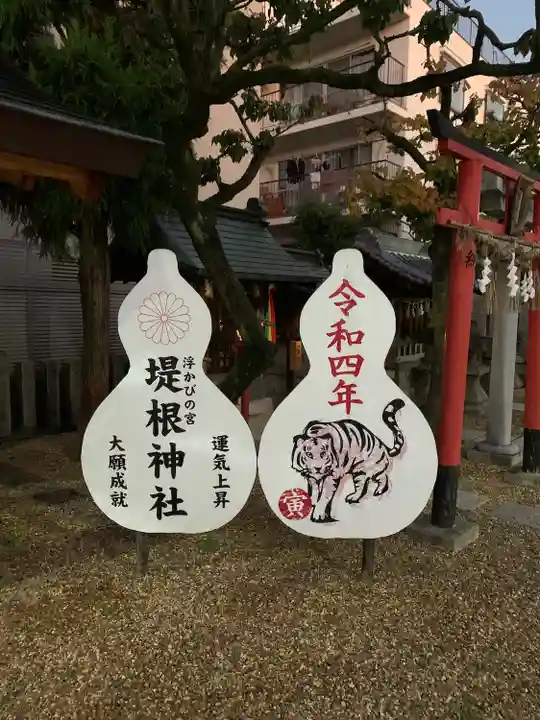 浮かびの宮
堤根神社
運気上昇
大願成就
令和四年
寅